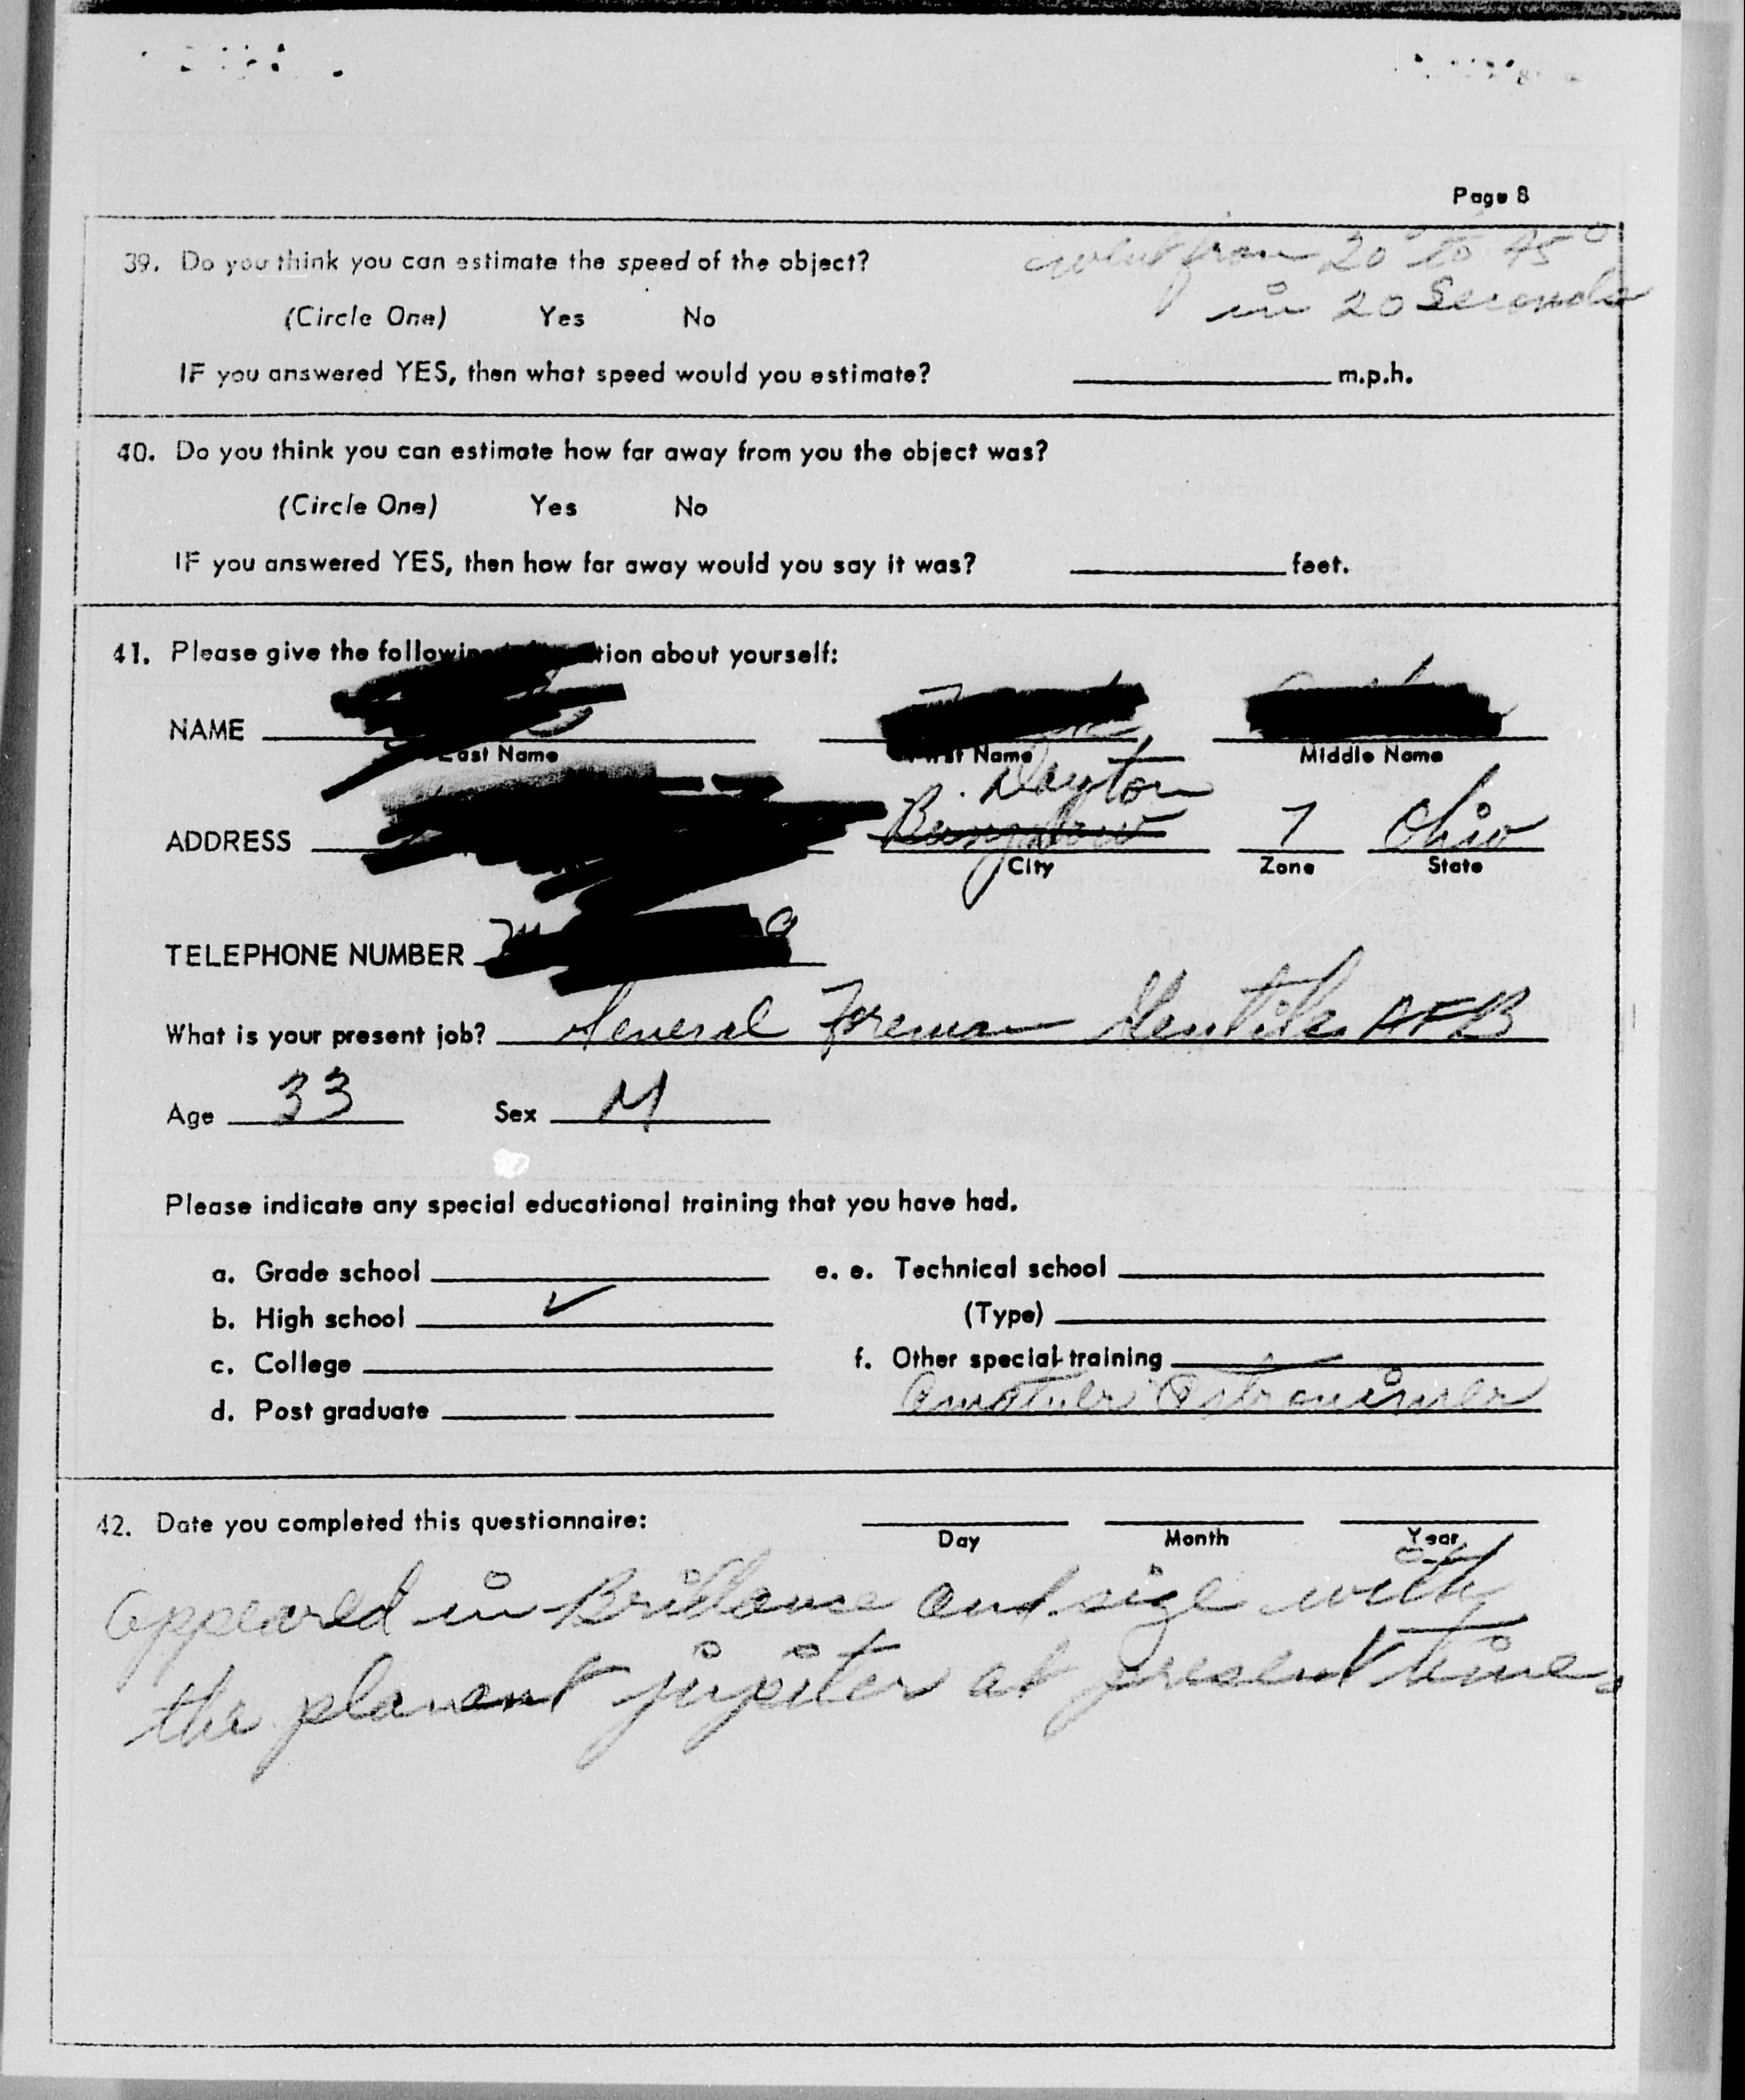 Page 8
39. Do you think you can estimate the speed of the object?
went from 20° to 45°
in 20 Seconds
(Circle One) Yes No
IF you answered YES, then what speed would you estimate? m.p.h.
40. Do you think you can estimate how far away from you the object was?
(Circle One) Yes No
IF you answered YES, then how far away would you say it was? feet.
41. Please give the following tion about yourself:
NAME
Last Name First Name Middle Name
Dayton
ADDRESS 7 Ohio
City Zone State
TELEPHONE NUMBER
What is your present job? General Foreman Gentile AFB
Age 33 Sex M
Please indicate any special educational training that you have had.
a. Grade school e. e. Technical school
b. High school ✓ (Type)
c. College f. Other special training
d. Post graduate Amatuer Astronimer
42. Date you completed this questionnaire:
Day Month Year
appeared in Brillance and size with
the planent jupiter at present time.